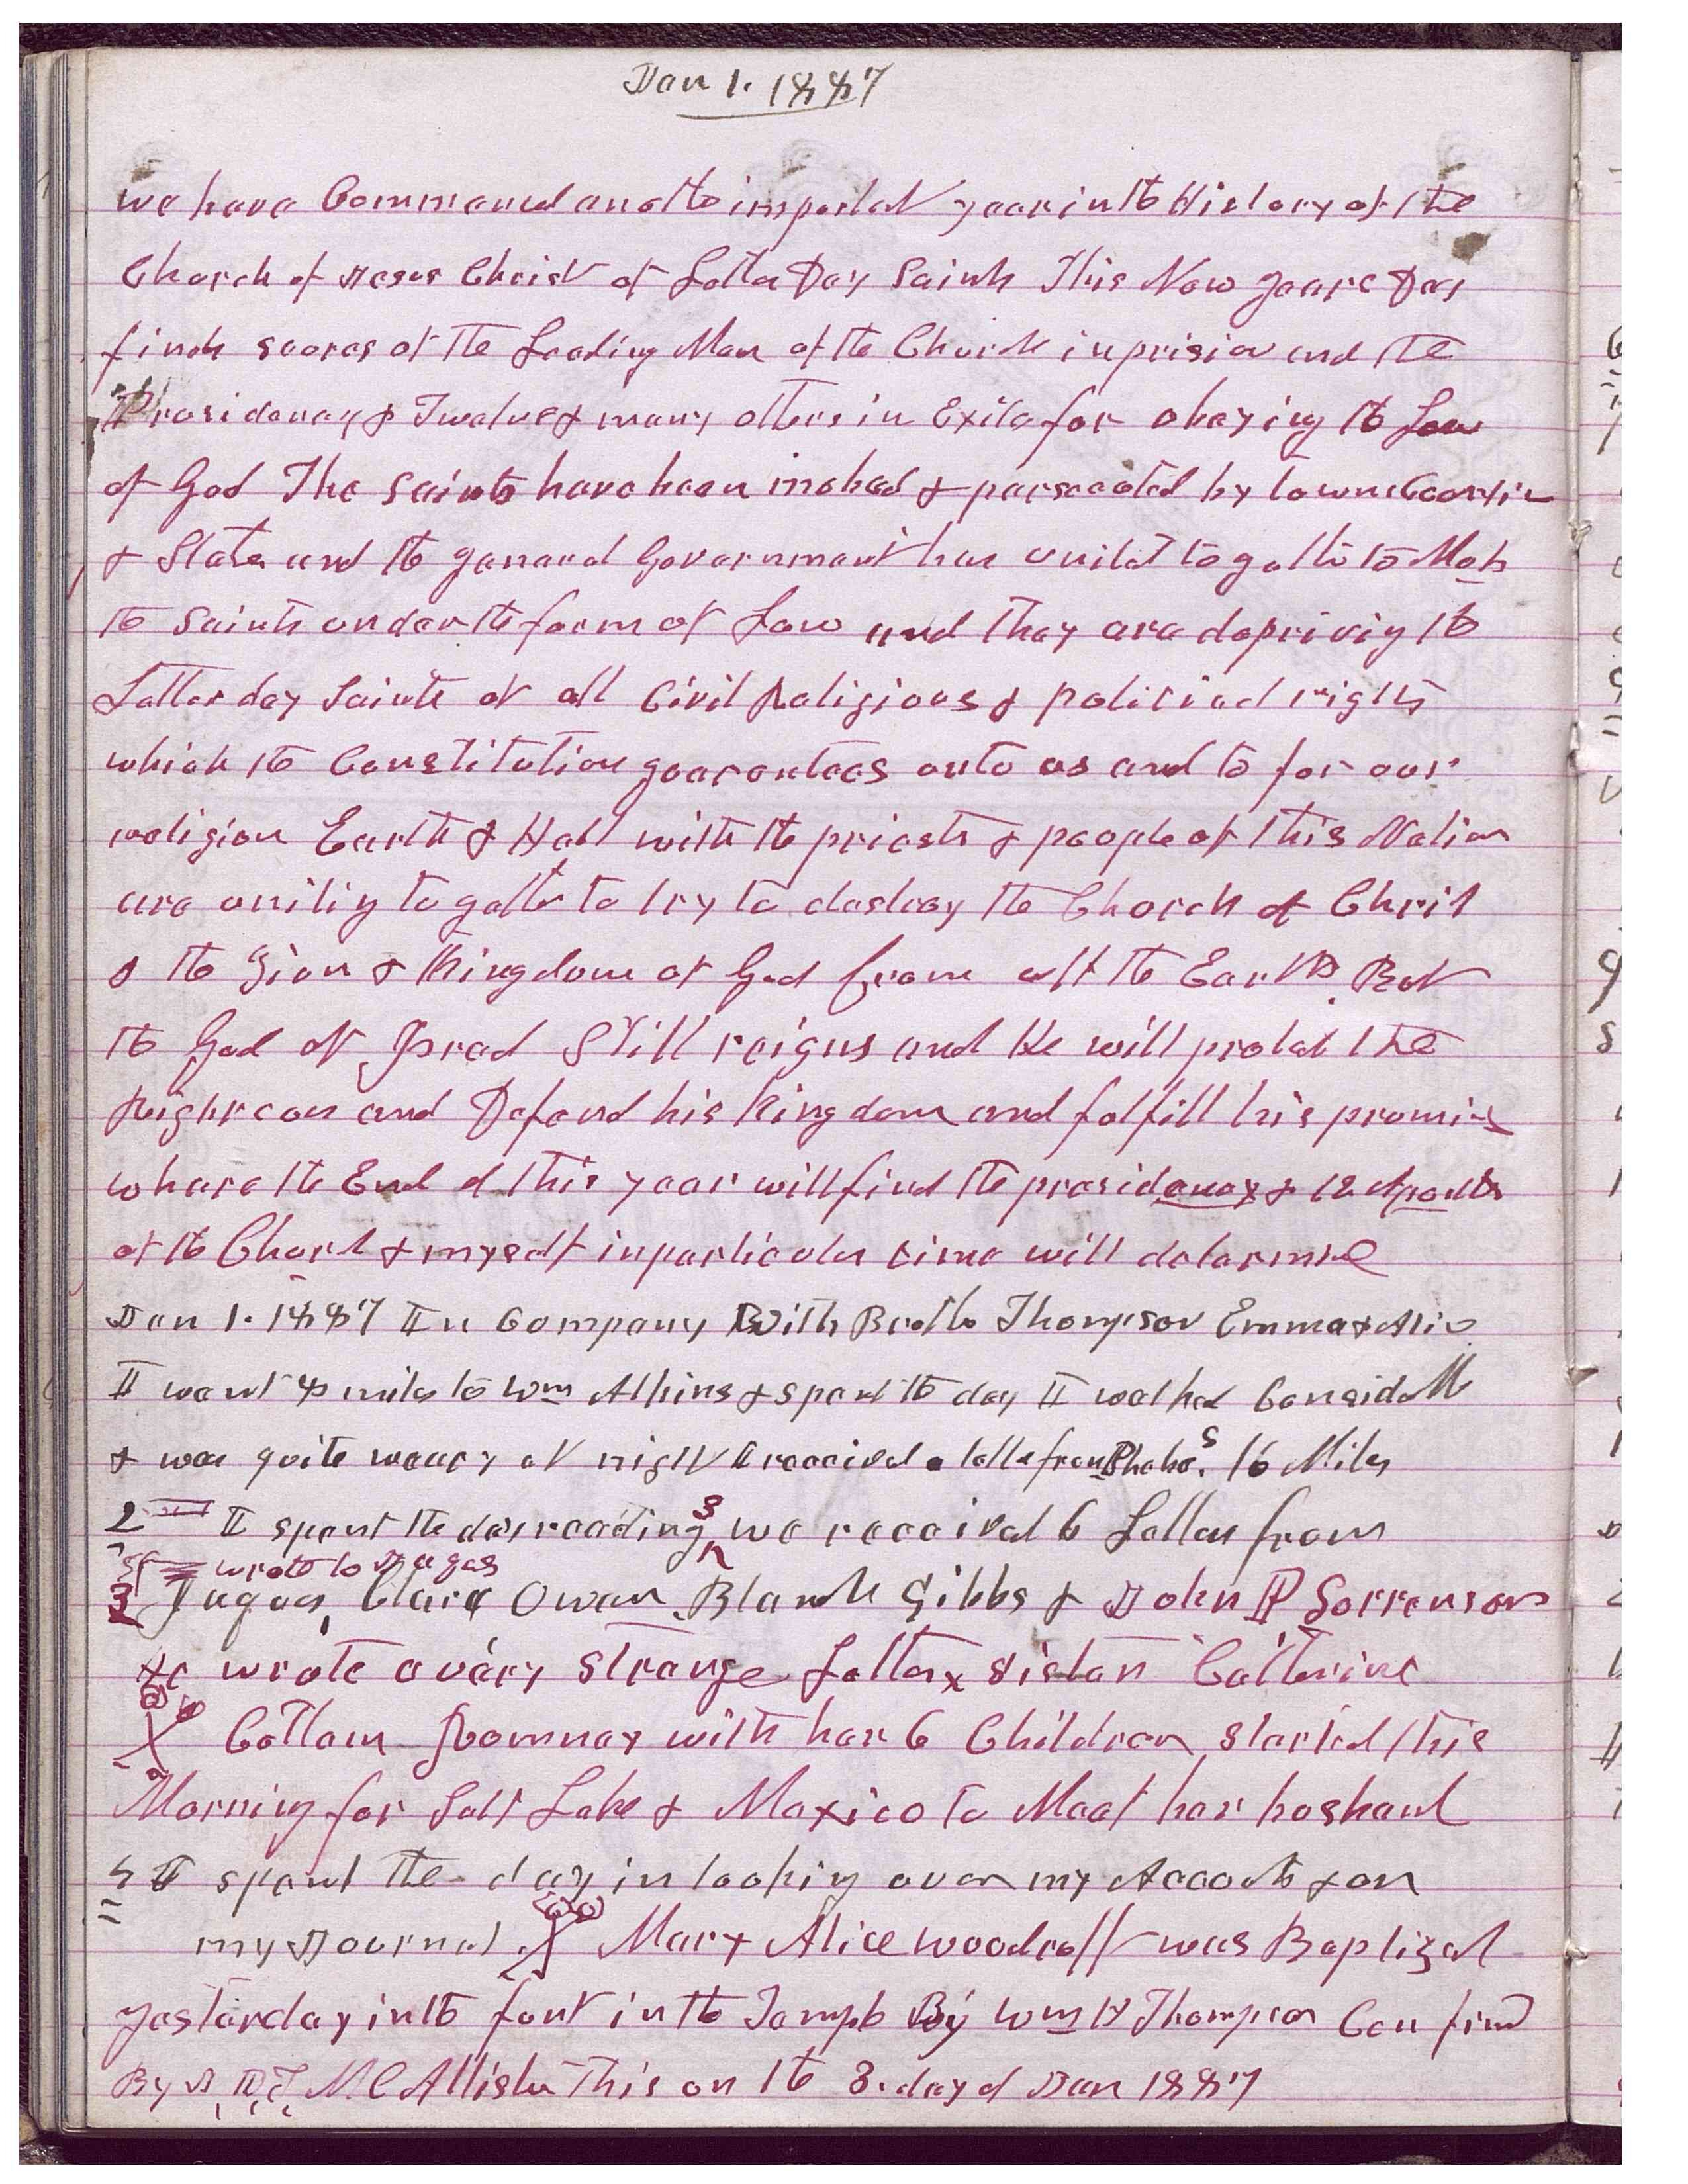 Jan 1. 1887
we have Commenced another important year in the History of the
Church of Jesus Christ of Latter Day Saints This New years Day
finds scores of the Leading Men of the Church in prision and the
Presidency & Twelve & many others in Exile for obeying the Law
of God The Saints have been mobed & persecuted by towns Counties
& State and the general Government has united together to Mob
the Saints under the form of Law and they are depriving the
Latter day Saints of all Civil Religious & political rights
which the Constitution guarantees unto us and to for our
religion Earth & Hell with the priests & people of this Nation
are uniting together to try to destroy the Church of Christ
& the Zion & Kingdom of God from off the Earth But
the God of Israel Still reigns and He will protect the
Righteous and Defend his Kingdom and fulfill his promises
where the End of this year will find the presidency & 12 Apostles
of the Church & myself in particular time will determine
Jan 1. 1887 In Company With Brother Thompson Emma & Alice
I went 4 miles to Wm Atkins & spent the day I walked Considerable
& was quite weary at night I received a letter from Phebe. 16 Miles
2 I spent the day reading 3 we received 6 Letters from
wrote to Jaques
3 Jaques, Clara Owen Blanch Gibbs & John P Sorrenson
He wrote a very strange Letter X Sister Catherine
Cottam Romney with her 6 Children started this
Morning for Salt Lake & Mexico to Meet her husband
4 I spent the day in looking over my Accounts & on
my Journal Mary Alice Woodruff was Baptized
yesterday in the font in the Temple By Wm H Thompson Confirmed
By J D T McAllister This on the 3. day of Jan 1887